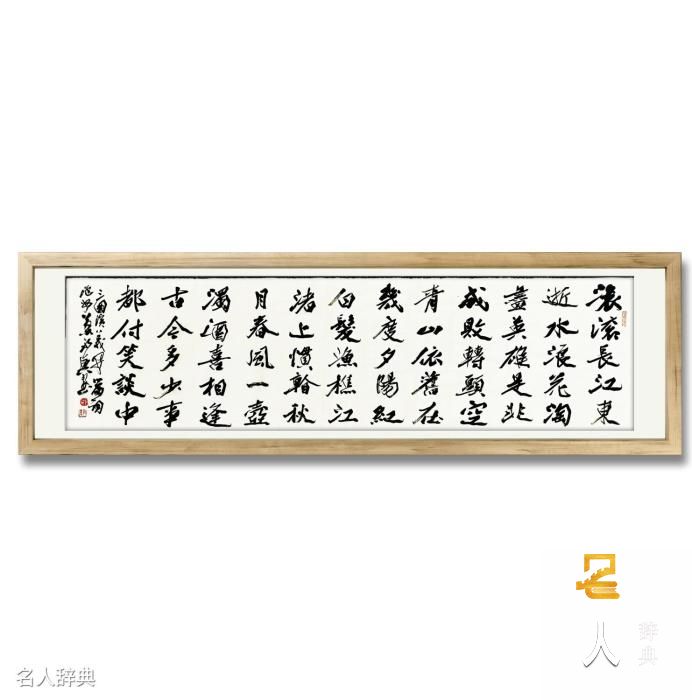 滚滚長江東
逝水浪花淘
盡英雄是非
成敗轉頭空
青山依舊在
幾度夕陽紅
白髮漁樵江
渚上慣看秋
月春風一壺
濁酒喜相逢
古今多少事
都付笑談中
三國演義開篇词
名人辞典
名人辞典